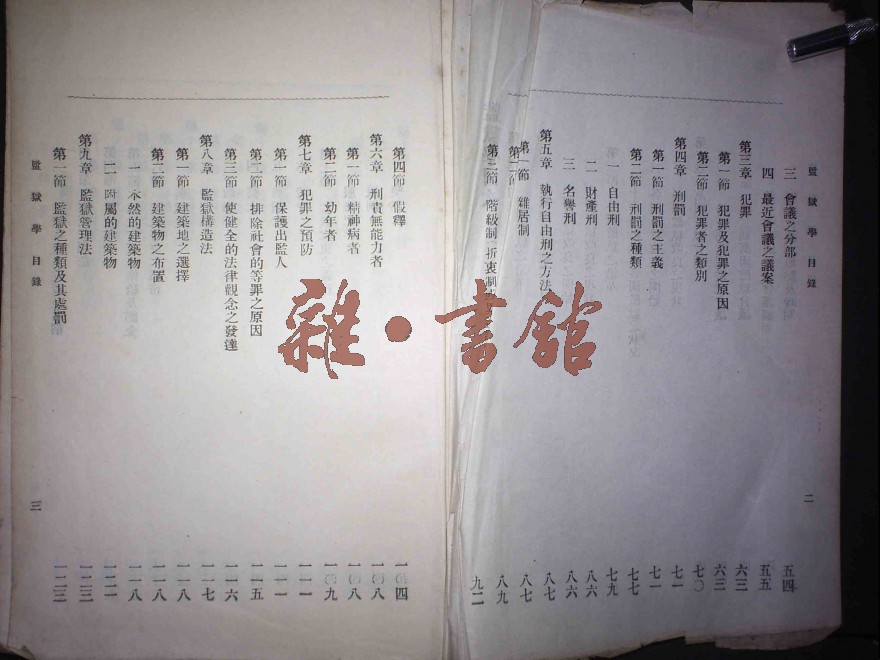 監獄學目錄
三 會議之分部 五四
四 最近會議之議案 五五
第三章 犯罪 六三
第一節 犯罪及犯罪之原因 六三
第二節 犯罪者之類別 七〇
第四章 刑罰 七一
第一節 刑罰之主義 七一
第二節 刑罰之種類 七七
一 自由刑 七九
二 財產刑 八六
三 名譽刑 八六
第五章 執行自由刑之方法 八七
第一節 雜居制 八七
第二節 八九
第三節 階級制 折衷制 九二
二
第四節 假釋 一〇四
第六章 刑責無能力者 一〇八
第一節 精神病者 一〇八
第二節 幼年者 一〇九
第七章 犯罪之預防 一一一
第一節 保護出監人 一一一
第二節 排除社會的等罪之原因 一一五
第三節 使健全的法律觀念之發達 一一六
第八章 監獄構造法 一一七
第一節 建築地之選擇 一一八
第二節 建築物之布置 一一八
一 本然的建築物 一一八
二 附屬的建築物 一二一
第九章 監獄管理法 一二三
第一節 監獄之種類及其處罰 一二三
監獄學目錄
三
雜·書館